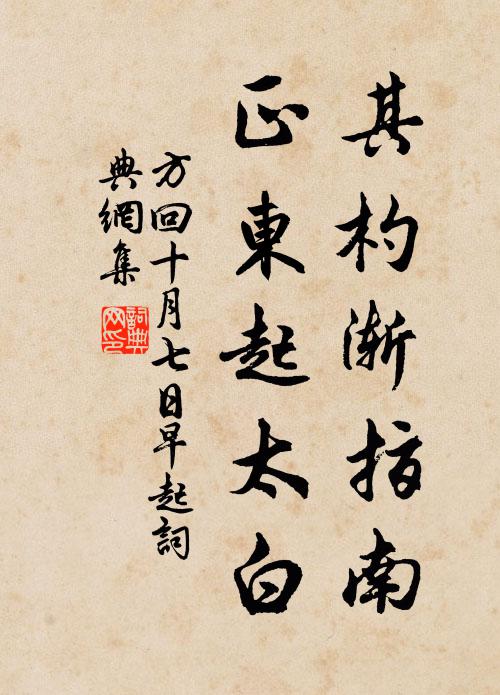 其杓渐指南
正東起太白
方回十月七日早起詞
典網集
詞典网印